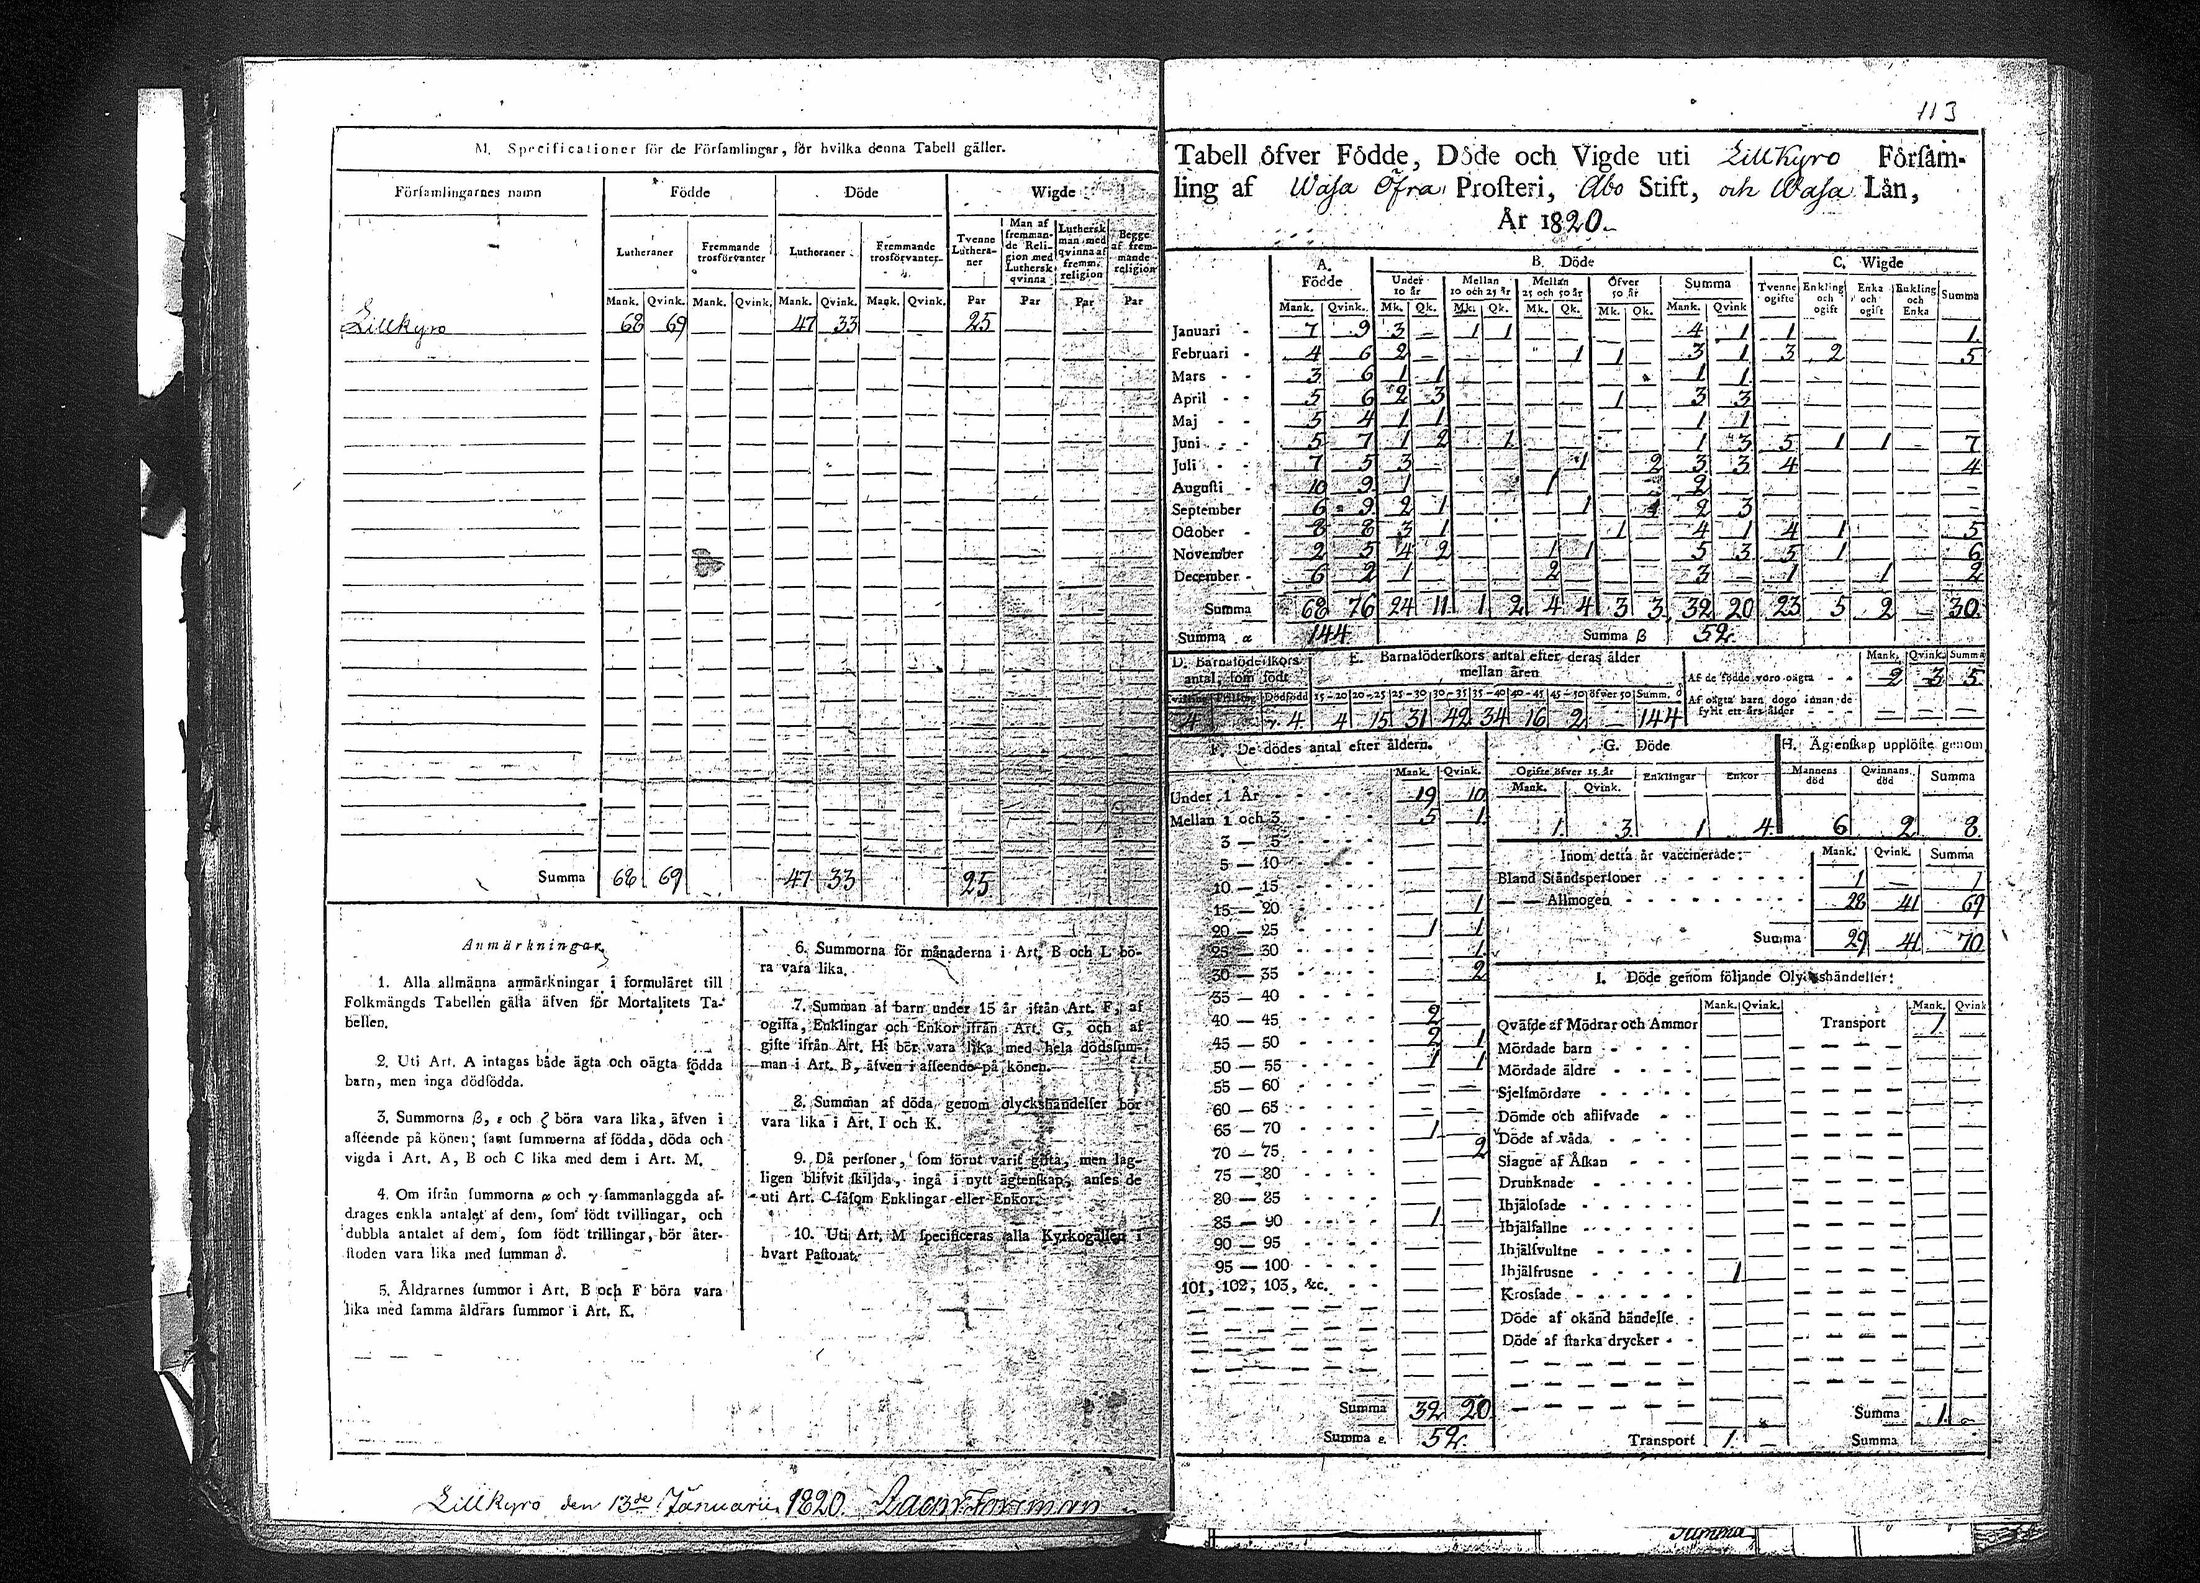 M. Specificationer för de Församlingar, för hvilka denna Tabell gäller.
Församlingarnes namn | Födde | Döde | Wigde
Lutheraner | Fremmande trosförvanter | Lutheraner | Fremmande trosförvanter | Tvenne Lutheraner | Man af fremmande Religion med Luthersk qvinna | Luthersk man med qvinna af fremm. religion | Begge af fremmande religion
Mank. | Qvink. | Mank. | Qvink. | Mank. | Qvink. | Mank. | Qvink. | Par | Par | Par | Par
Lillkyro | 68 | 69 | — | — | 47 | 33 | — | — | 25 | — | — | —
Summa | 68 | 69 | 47 | 33 | 25
Anmärkningar.
1. Alla allmänna anmärkningar i formuläret till
Folkmängds Tabellen gälla äfven för Mortalitets Ta-
bellen.
2. Uti Art. A intagas både ägta och oägta födda
barn, men inga dödfödda.
3. Summorna β, ε och ζ böra vara lika, äfven i
afseende på könen; samt summorna af födda, döda och
vigda i Art. A, B och C lika med dem i Art. M.
4. Om ifrån summorna α och γ sammanlaggda af-
drages enkla antalet af dem, som födt tvillingar, och
dubbla antalet af dem, som födt trillingar, bör åter-
stoden vara lika med summan δ.
5. Åldrarnes summor i Art. B och F böra vara
lika med samma åldrars summor i Art. K.
6. Summorna för månaderna i Art. B och L bö-
ra vara lika.
7. Summan af barn under 15 år ifrån Art. F, af
ogifta, Enklingar och Enkor ifrån Art. G, och af
gifte ifrån Art. H: bör vara lika med hela dödssum-
man i Art. B, äfven i afseende på könen.
8. Summan af döda genom olyckshändelser bör
vara lika i Art. I och K.
9. Då personer, som förut varit gifta, men lag-
ligen blifvit skiljda, ingå i nytt ägtenskap, anses de
uti Art. C såsom Enklingar eller Enkor.
10. Uti Art. M specificeras alla Kyrkogällen i
hvart Pastorat.
Lillkyro den 13de Januarii 1820.
113
Tabell öfver Födde, Döde och Vigde uti Lillkyro Försam-
ling af Wasa Öfra Prosteri, Åbo Stift, och Wasa Län,
År 1820.
A. Födde | B. Döde | C. Wigde
Under 10 år | Mellan 10 och 25 år | Mellan 25 och 50 år | Öfver 50 år | Summa | Tvenne ogifte | Enkling och ogift | Enka och ogift | Enkling och Enka | Summa
Mank. | Qvink. | Mk. | Qk. | Mk. | Qk. | Mk. | Qk. | Mk. | Qk. | Mank. | Qvink
Januari | 7 | 9 | 3 | — | 1 | 1 | — | — | — | — | 4 | 1 | 1 | — | — | — | 1
Februari | 4 | 6 | 2 | — | — | — | — | 1 | 1 | — | 3 | 1 | 3 | 2 | — | — | 5
Mars | 3 | 6 | 1 | 1 | — | — | — | — | — | — | 1 | 1
April | 5 | 6 | 2 | 3 | — | — | — | — | 1 | — | 3 | 3
Maj | 5 | 4 | 1 | 1 | — | — | — | — | — | — | 1 | 1
Juni | 5 | 7 | 1 | 2 | — | 1 | — | — | — | — | 1 | 3 | 5 | 1 | 1 | — | 7
Juli | 7 | 5 | 3 | — | — | — | — | 1 | — | 2 | 3 | 3 | 4 | — | — | — | 4
Augusti | 10 | 9 | 1 | — | — | — | 1 | — | — | — | 2
September | 6 | 9 | 2 | 1 | — | — | — | 1 | — | 1 | 2 | 3
October | 8 | 8 | 3 | 1 | — | — | — | — | 1 | — | 4 | 1 | 4 | 1 | — | — | 5
November | 2 | 5 | 4 | 2 | — | — | 1 | 1 | — | — | 5 | 3 | 5 | 1 | — | — | 6
December | 6 | 2 | 1 | — | — | — | 2 | — | — | — | 3 | — | 1 | — | 1 | — | 2
Summa | 68 | 76 | 24 | 11 | 1 | 2 | 4 | 4 | 3 | 3 | 32 | 20 | 23 | 5 | 2 | — | 30
Summa α | 144 | Summa β | 52
D. Barnaföderskors antal, som födt | E. Barnaföderskors antal efter deras ålder mellan åren
Dödfödd | 15—20 | 20—25 | 25—30 | 30—35 | 35—40 | 40—45 | 45—50 | öfver 50 | Summ. δ
4 | γ 4 | 4 | 15 | 31 | 42 | 34 | 16 | 2 | — | 144
Mank. | Qvink. | Summa
Af de födde voro oägta | 2 | 3 | 5
Af oägta barn dogo innan de fyllt ett års ålder | — | — | —
F. De dödes antal efter åldern.
Mank. | Qvink.
Under 1 År | 19 | 10
Mellan 1 och 3 | 5 | 1
3 — 5
5 — 10
10 — 15
15 — 20 | — | 1
20 — 25 | 1 | 1
25 — 30 | — | 1
30 — 35 | — | 2
35 — 40
40 — 45 | 2 | —
45 — 50 | 2 | 1
50 — 55 | 1 | 1
55 — 60
60 — 65
65 — 70 | 1 | —
70 — 75 | — | 2
75 — 80
80 — 85
85 — 90 | 1 | —
90 — 95
95 — 100
101, 102, 103, &c.
Summa | 32 | 20
Summa ε. | 52
G. Döde | H. Ägtenskap upplöste genom
Ogifte öfver 15 år | Enklingar | Enkor | Mannens död | Qvinnans död | Summa
Mank. | Qvink.
1 | 3 | 1 | 4 | 6 | 2 | 8
Inom detta år vaccinerade: | Mank. | Qvink. | Summa
Bland Ståndspersoner | 1 | — | 1
— — Allmogen | 28 | 41 | 69
Summa | 29 | 41 | 70
I. Döde genom följande Olyckshändelser:
Mank. | Qvink. | Mank. | Qvink
Qväfde af Mödrar och Ammor | Transport | 1
Mördade barn
Mördade äldre
Sjelfmördare
Dömde och aflifvade
Döde af våda
Slagne af Åskan
Drunknade
Ihjälosade
Ihjälfallne
Ihjälsvultne
Ihjälfrusne | 1 | —
Krossade
Döde af okänd händelse
Döde af starka drycker
Summa | 1 | —
Transport | 1 | — | Summa
Summa